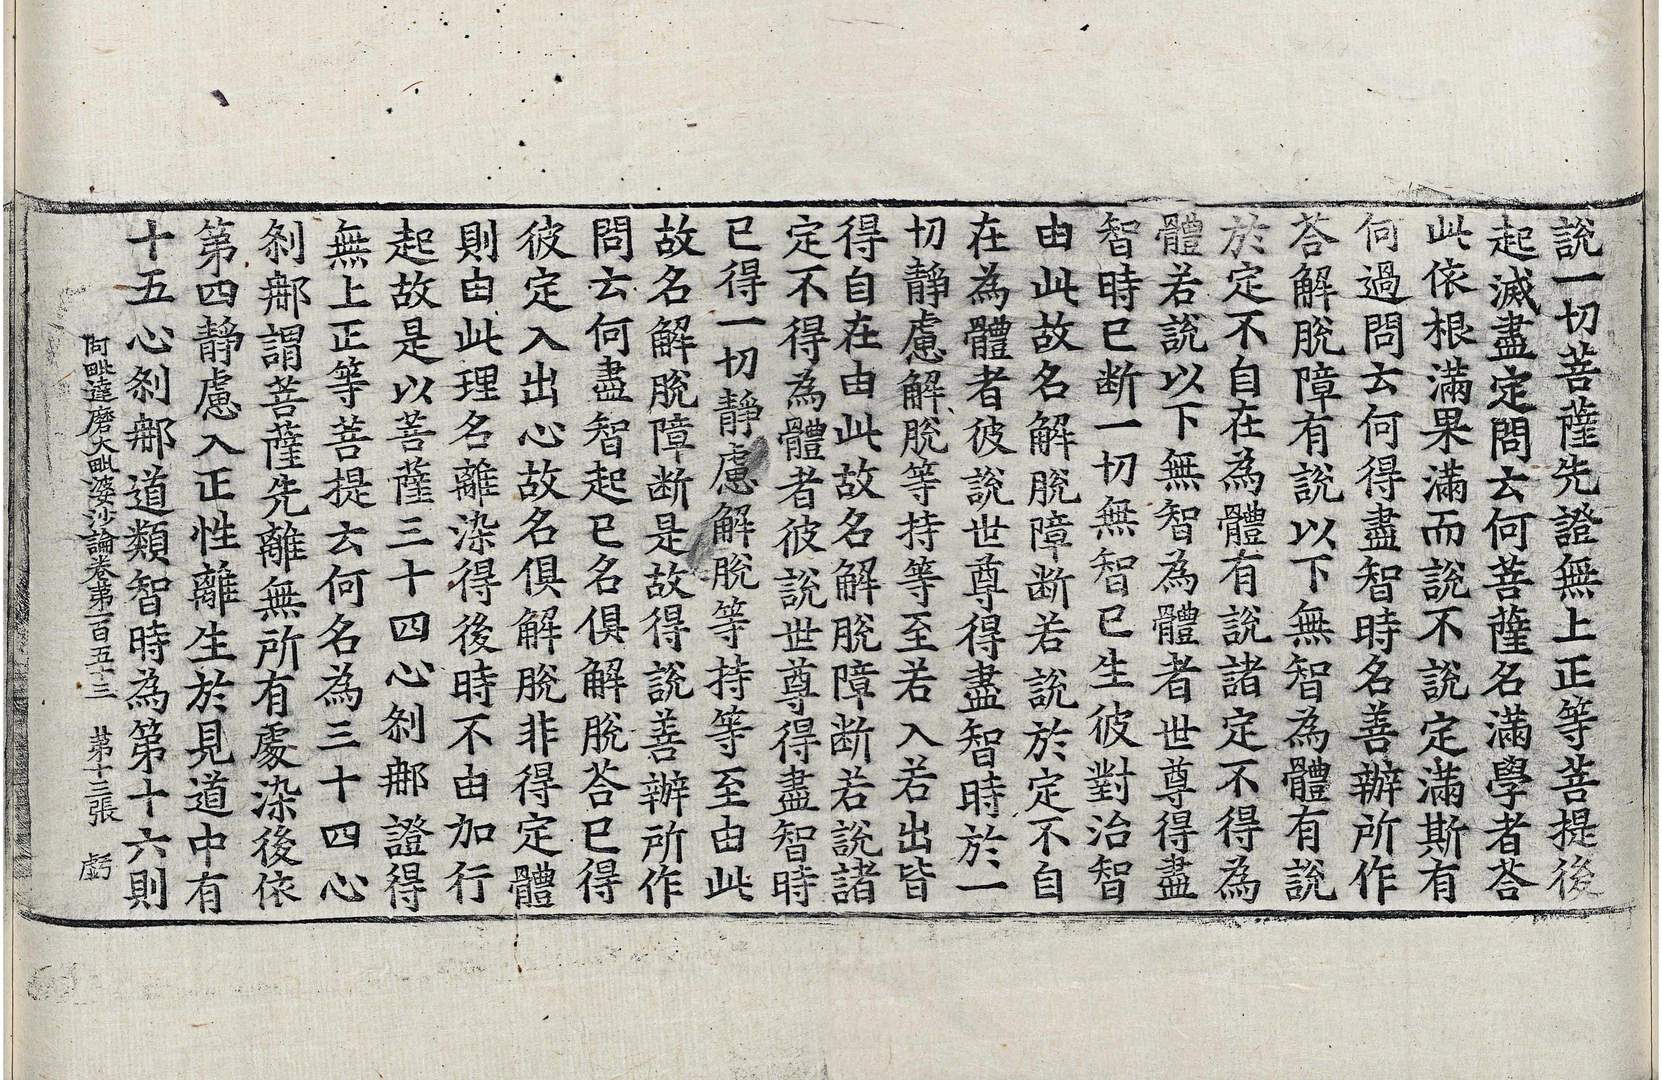 說一切菩薩先證無上正等菩提後
起滅盡定問云何菩薩名滿學者荅
此依根滿果滿而說不說定滿斯有
何過問云何得盡智時名善辦所作
荅解脫障有說以下無智為體有說
於定不自在為體有說諸定不得為
體若說以下無智為體者世尊得盡
智時已断一切無智已生彼對治智
由此故名解脫障断若說於定不自
在為體者彼說世尊得盡智時於一
切靜慮解脫等持等至若入若出皆
得自在由此故名解脫障断若說諸
定不得為體者彼說世尊得盡智時
已得一切靜慮解脫等持等至由此
故名解脫障断是故得說善辦所作
問云何盡智起已名俱解脫荅已得
彼定入出心故名俱解脫非得定體
則由此理名離染得後時不由加行
起故是以菩薩三十四心剎那證得
無上正等菩提云何名為三十四心
剎那謂菩薩先離無所有處染後依
第四靜慮入正性離生於見道中有
十五心剎那道類智時為第十六則
阿毗達磨大毗婆沙論卷第一百五十三 第十三張 虧